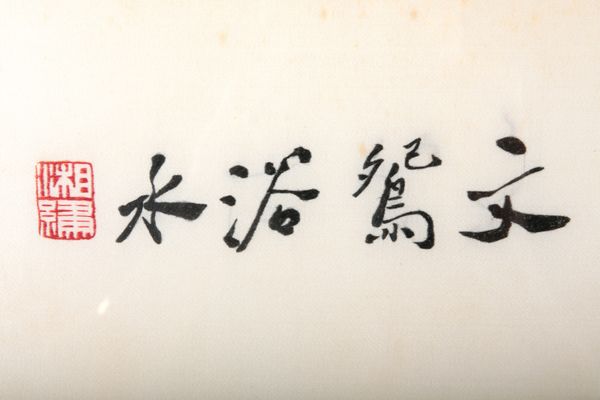 文鴛浴水
湘繡